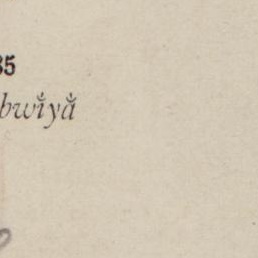 35
bwí̇yå̇